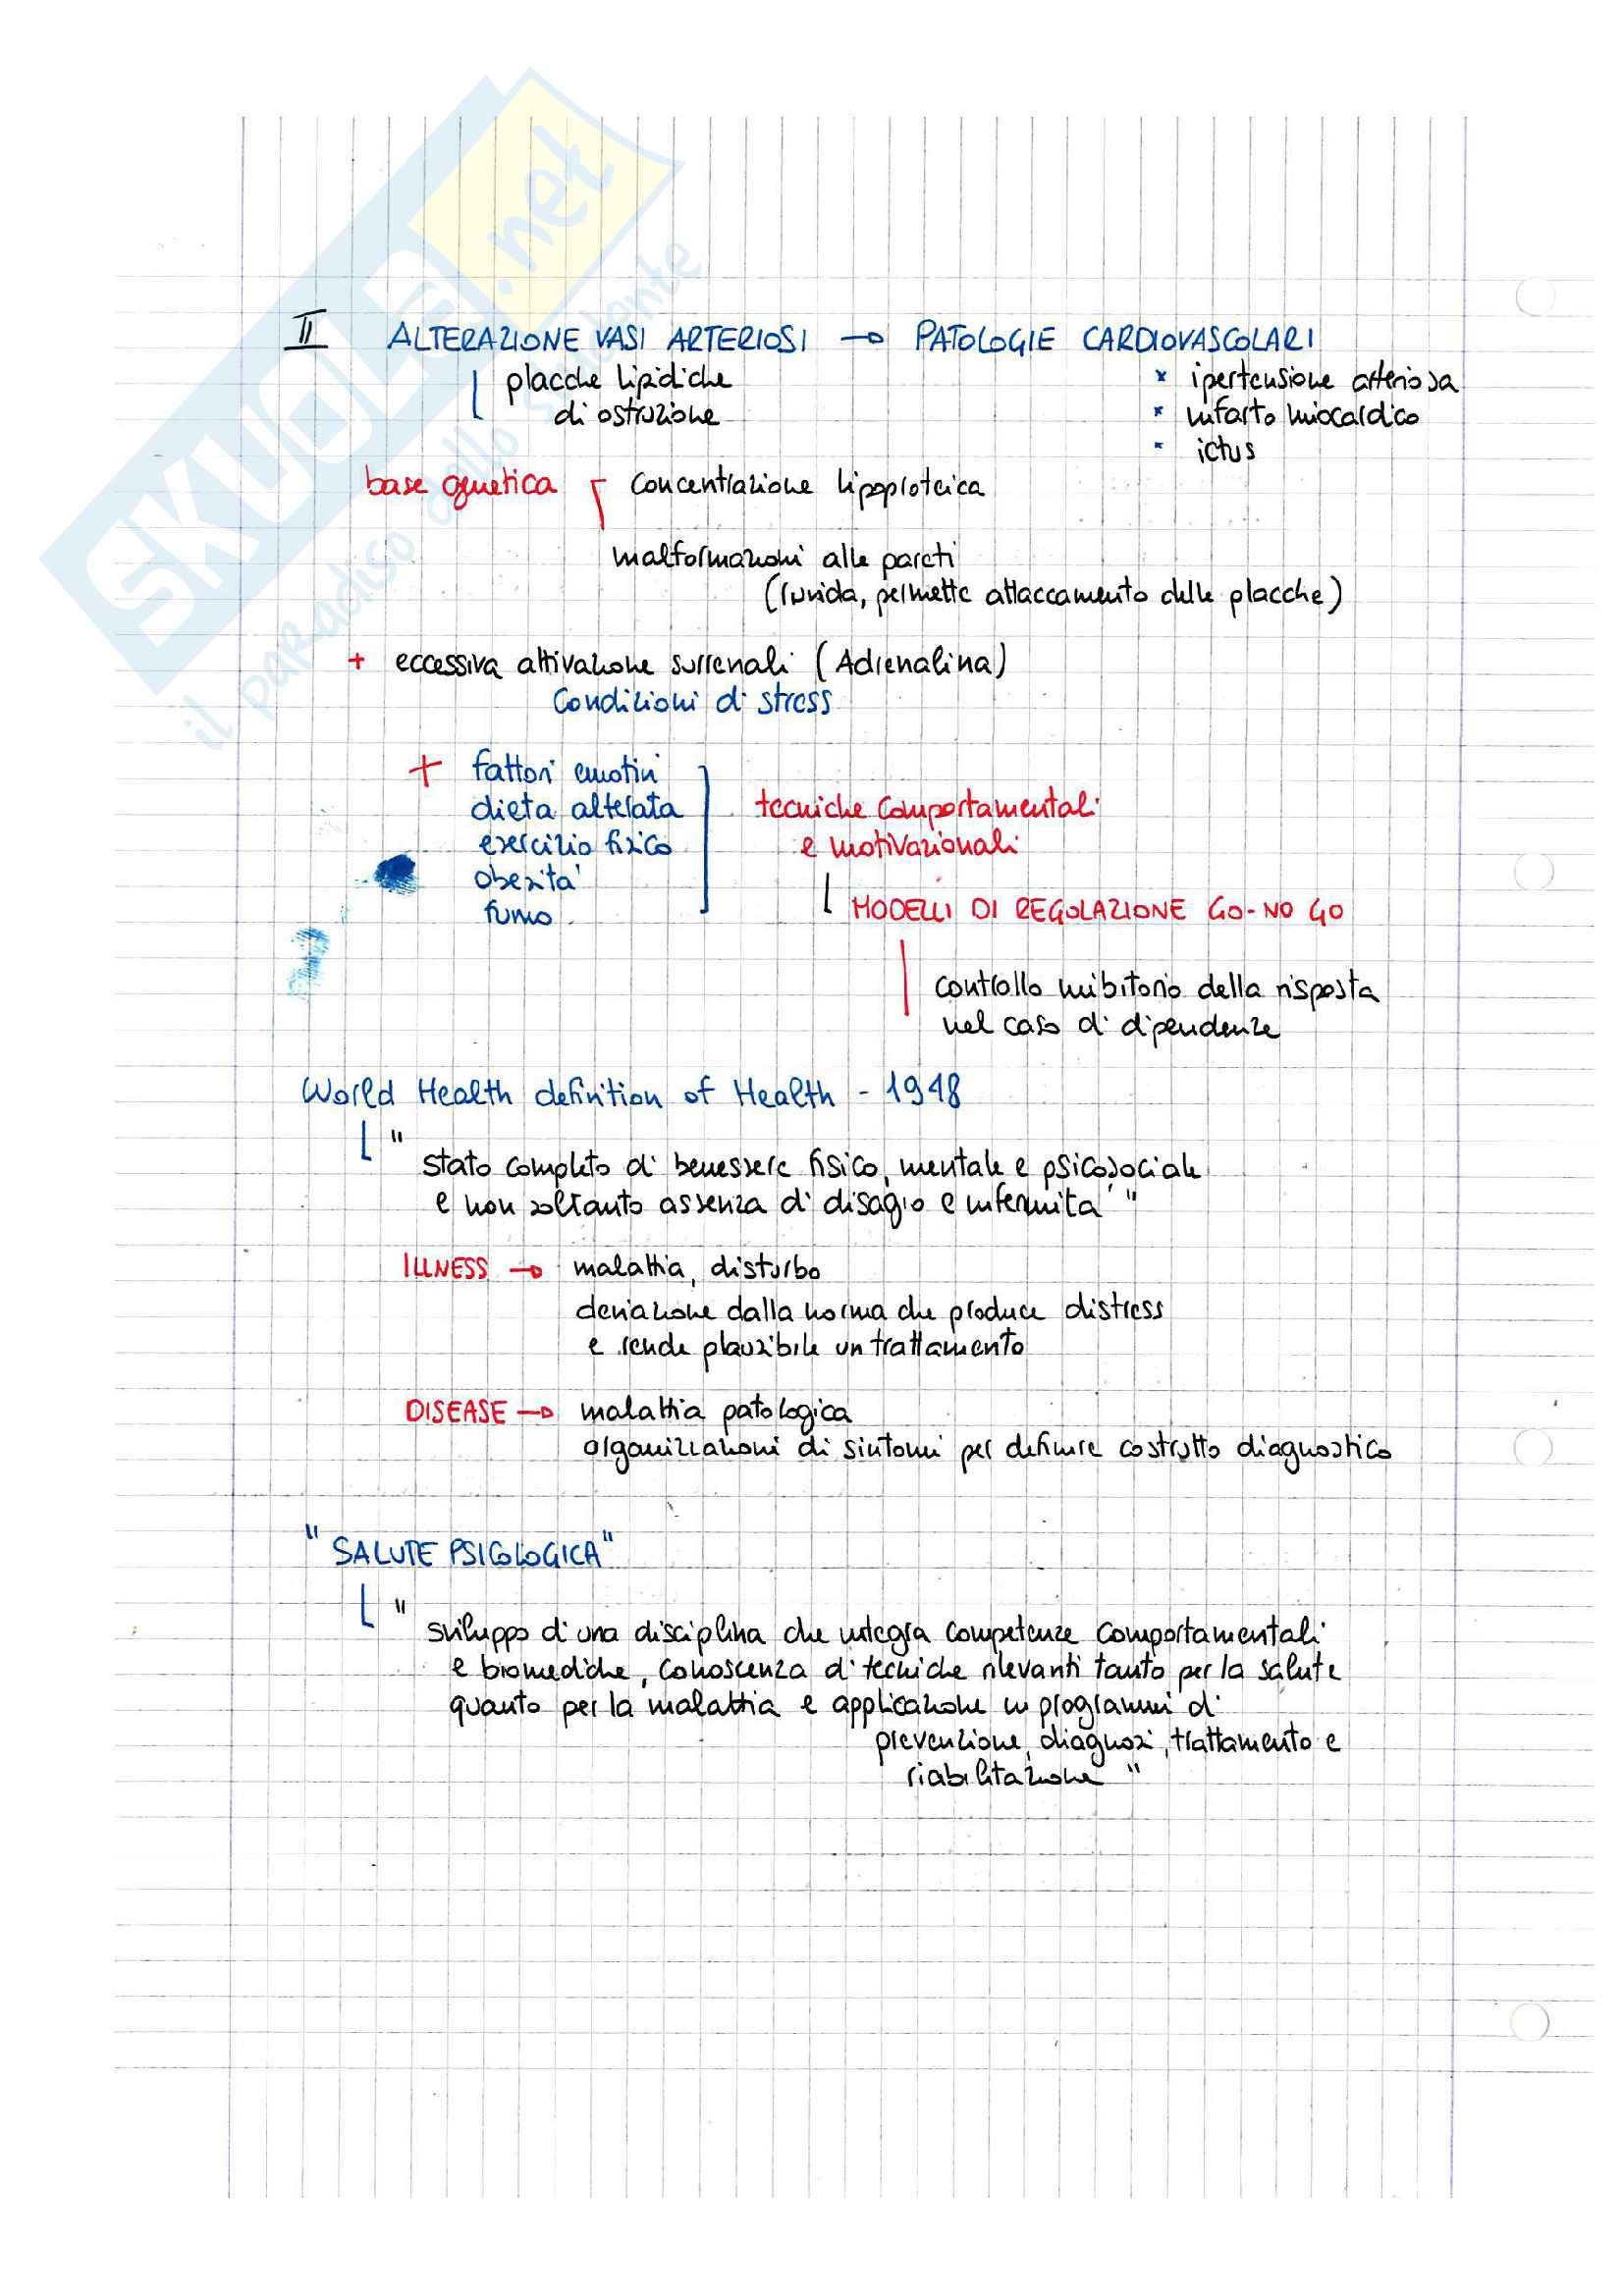 SKUOLA.net
il paradiso dello studente
II ALTERAZIONE VASI ARTERIOSI → PATOLOGIE CARDIOVASCOLARI
placche lipidiche
di ostruzione
x ipertensione arteriosa
x infarto miocardico
x ictus
base genetica concentrazione lipoproteica
malformazioni alle pareti
(ruvida, permette attaccamento delle placche)
+ eccessiva attivazione surrenali (Adrenalina)
Condizioni di stress
+ fattori emotivi
dieta alterata
esercizio fisico
obesita'
fumo
tecniche comportamentali
e motivazionali
MODELLI DI REGOLAZIONE GO-NO GO
controllo inibitorio della risposta
nel caso di dipendenze
World Health definition of Health - 1948
" stato completo di benessere fisico, mentale e psicosociale
e non soltanto assenza di disagio e infermita' "
ILLNESS → malattia, disturbo
deviazione dalla norma che produce distress
e rende plausibile un trattamento
DISEASE → malattia patologica
organizzazioni di sintomi per definire costrutto diagnostico
"SALUTE PSICOLOGICA"
" sviluppo di una disciplina che integra competenze comportamentali
e biomediche, conoscenza di tecniche rilevanti tanto per la salute
quanto per la malattia e applicazione in programmi di
prevenzione, diagnosi, trattamento e
riabilitazione "